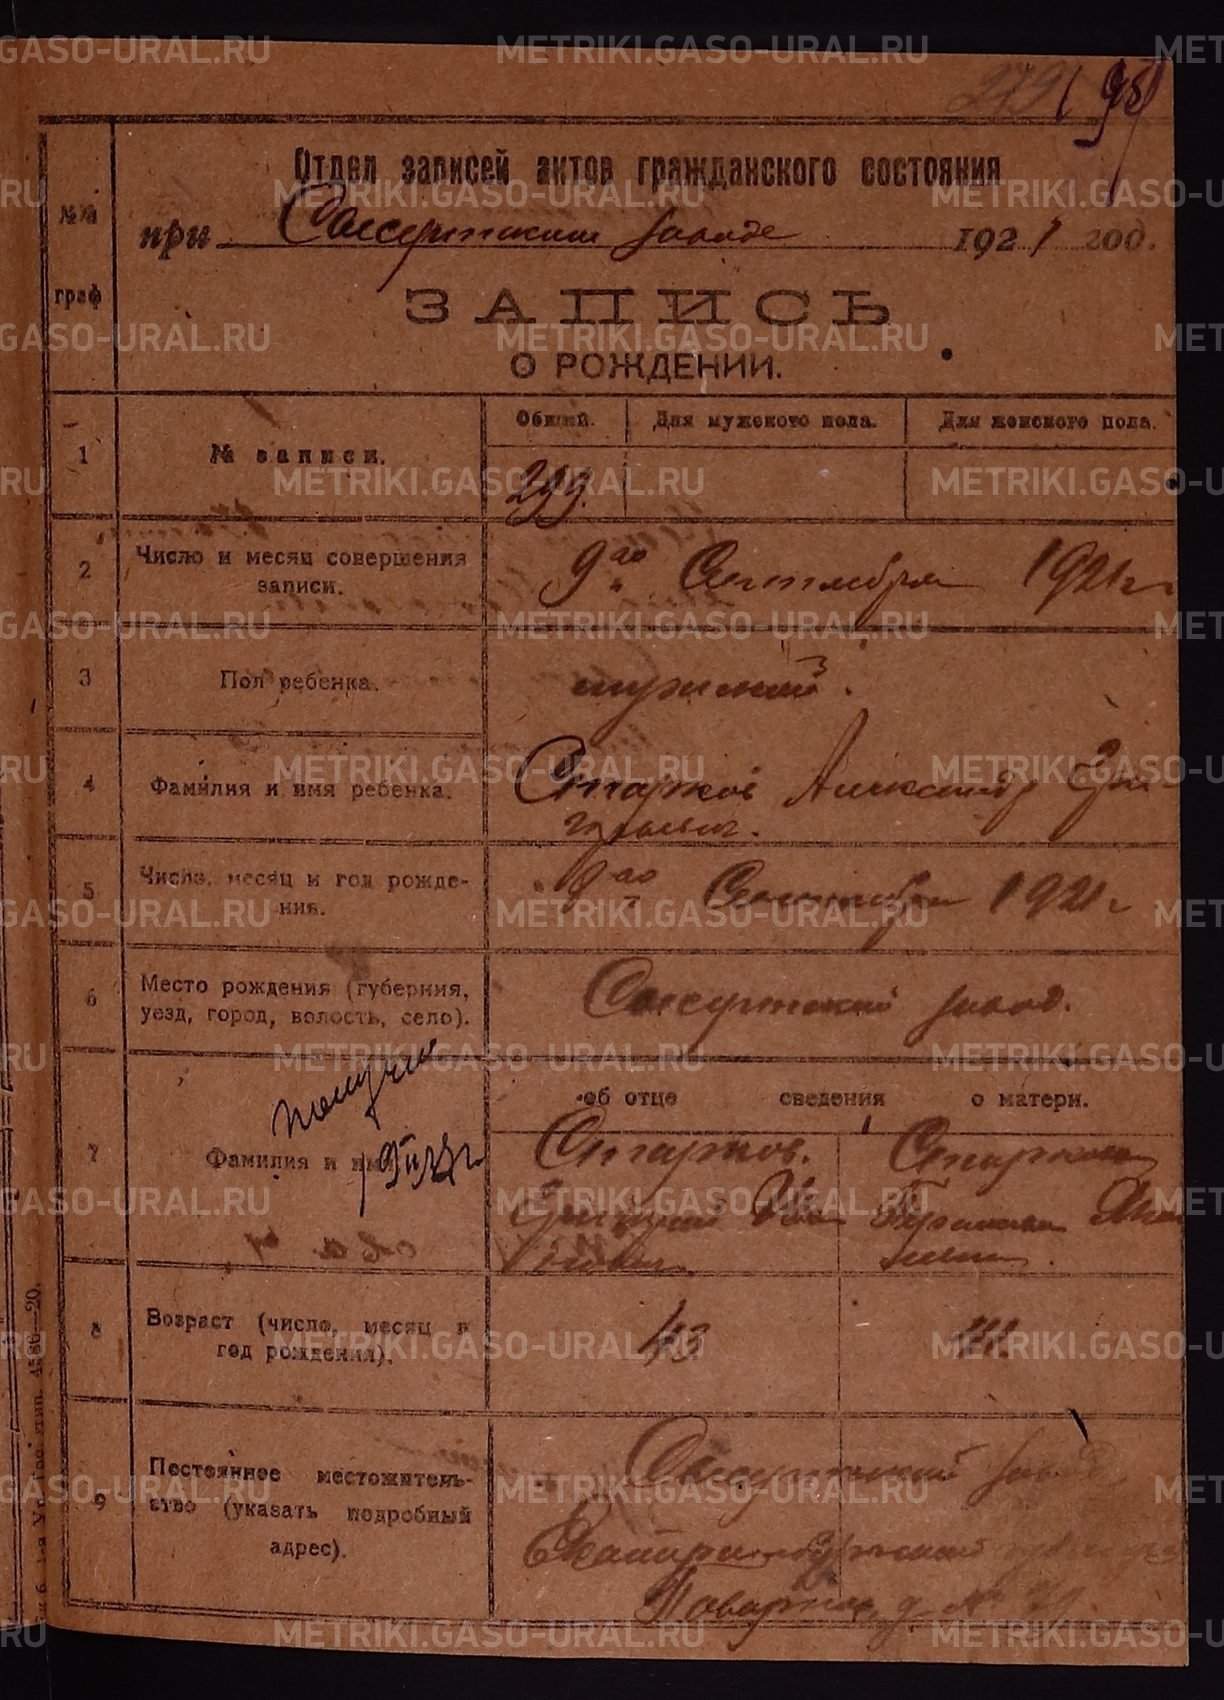 279
Отдел записей актов гражданского состояния
при Сысертском заводе 1921 год.
№№
граф
ЗАПИСЬ
О РОЖДЕНИИ.
1
№ записи.
Общий. Для мужского пола. Для женского пола.
299.
2
Число и месяц совершения
записи.
9го Сентября 1921 г.
3
Пол ребенка.
мужской.
4
Фамилия и имя ребенка.
Старков Александр Гри-
горьевич.
5
Число, месяц и год рожде-
ния.
Сентября 1921 г
6
Место рождения (губерния,
уезд, город, волость, село).
Сысертский завод.
7
Фамилия и имя
об отце сведения о матери.
Старков. Старкова
Григорий
8
Возраст (число, месяц и
год рождения).
43 41.
9
Постоянное местожитель-
ство (указать подробный
адрес).
Сысертский завод
Екатеринбургский
METRIKI.GASO-URAL.RU